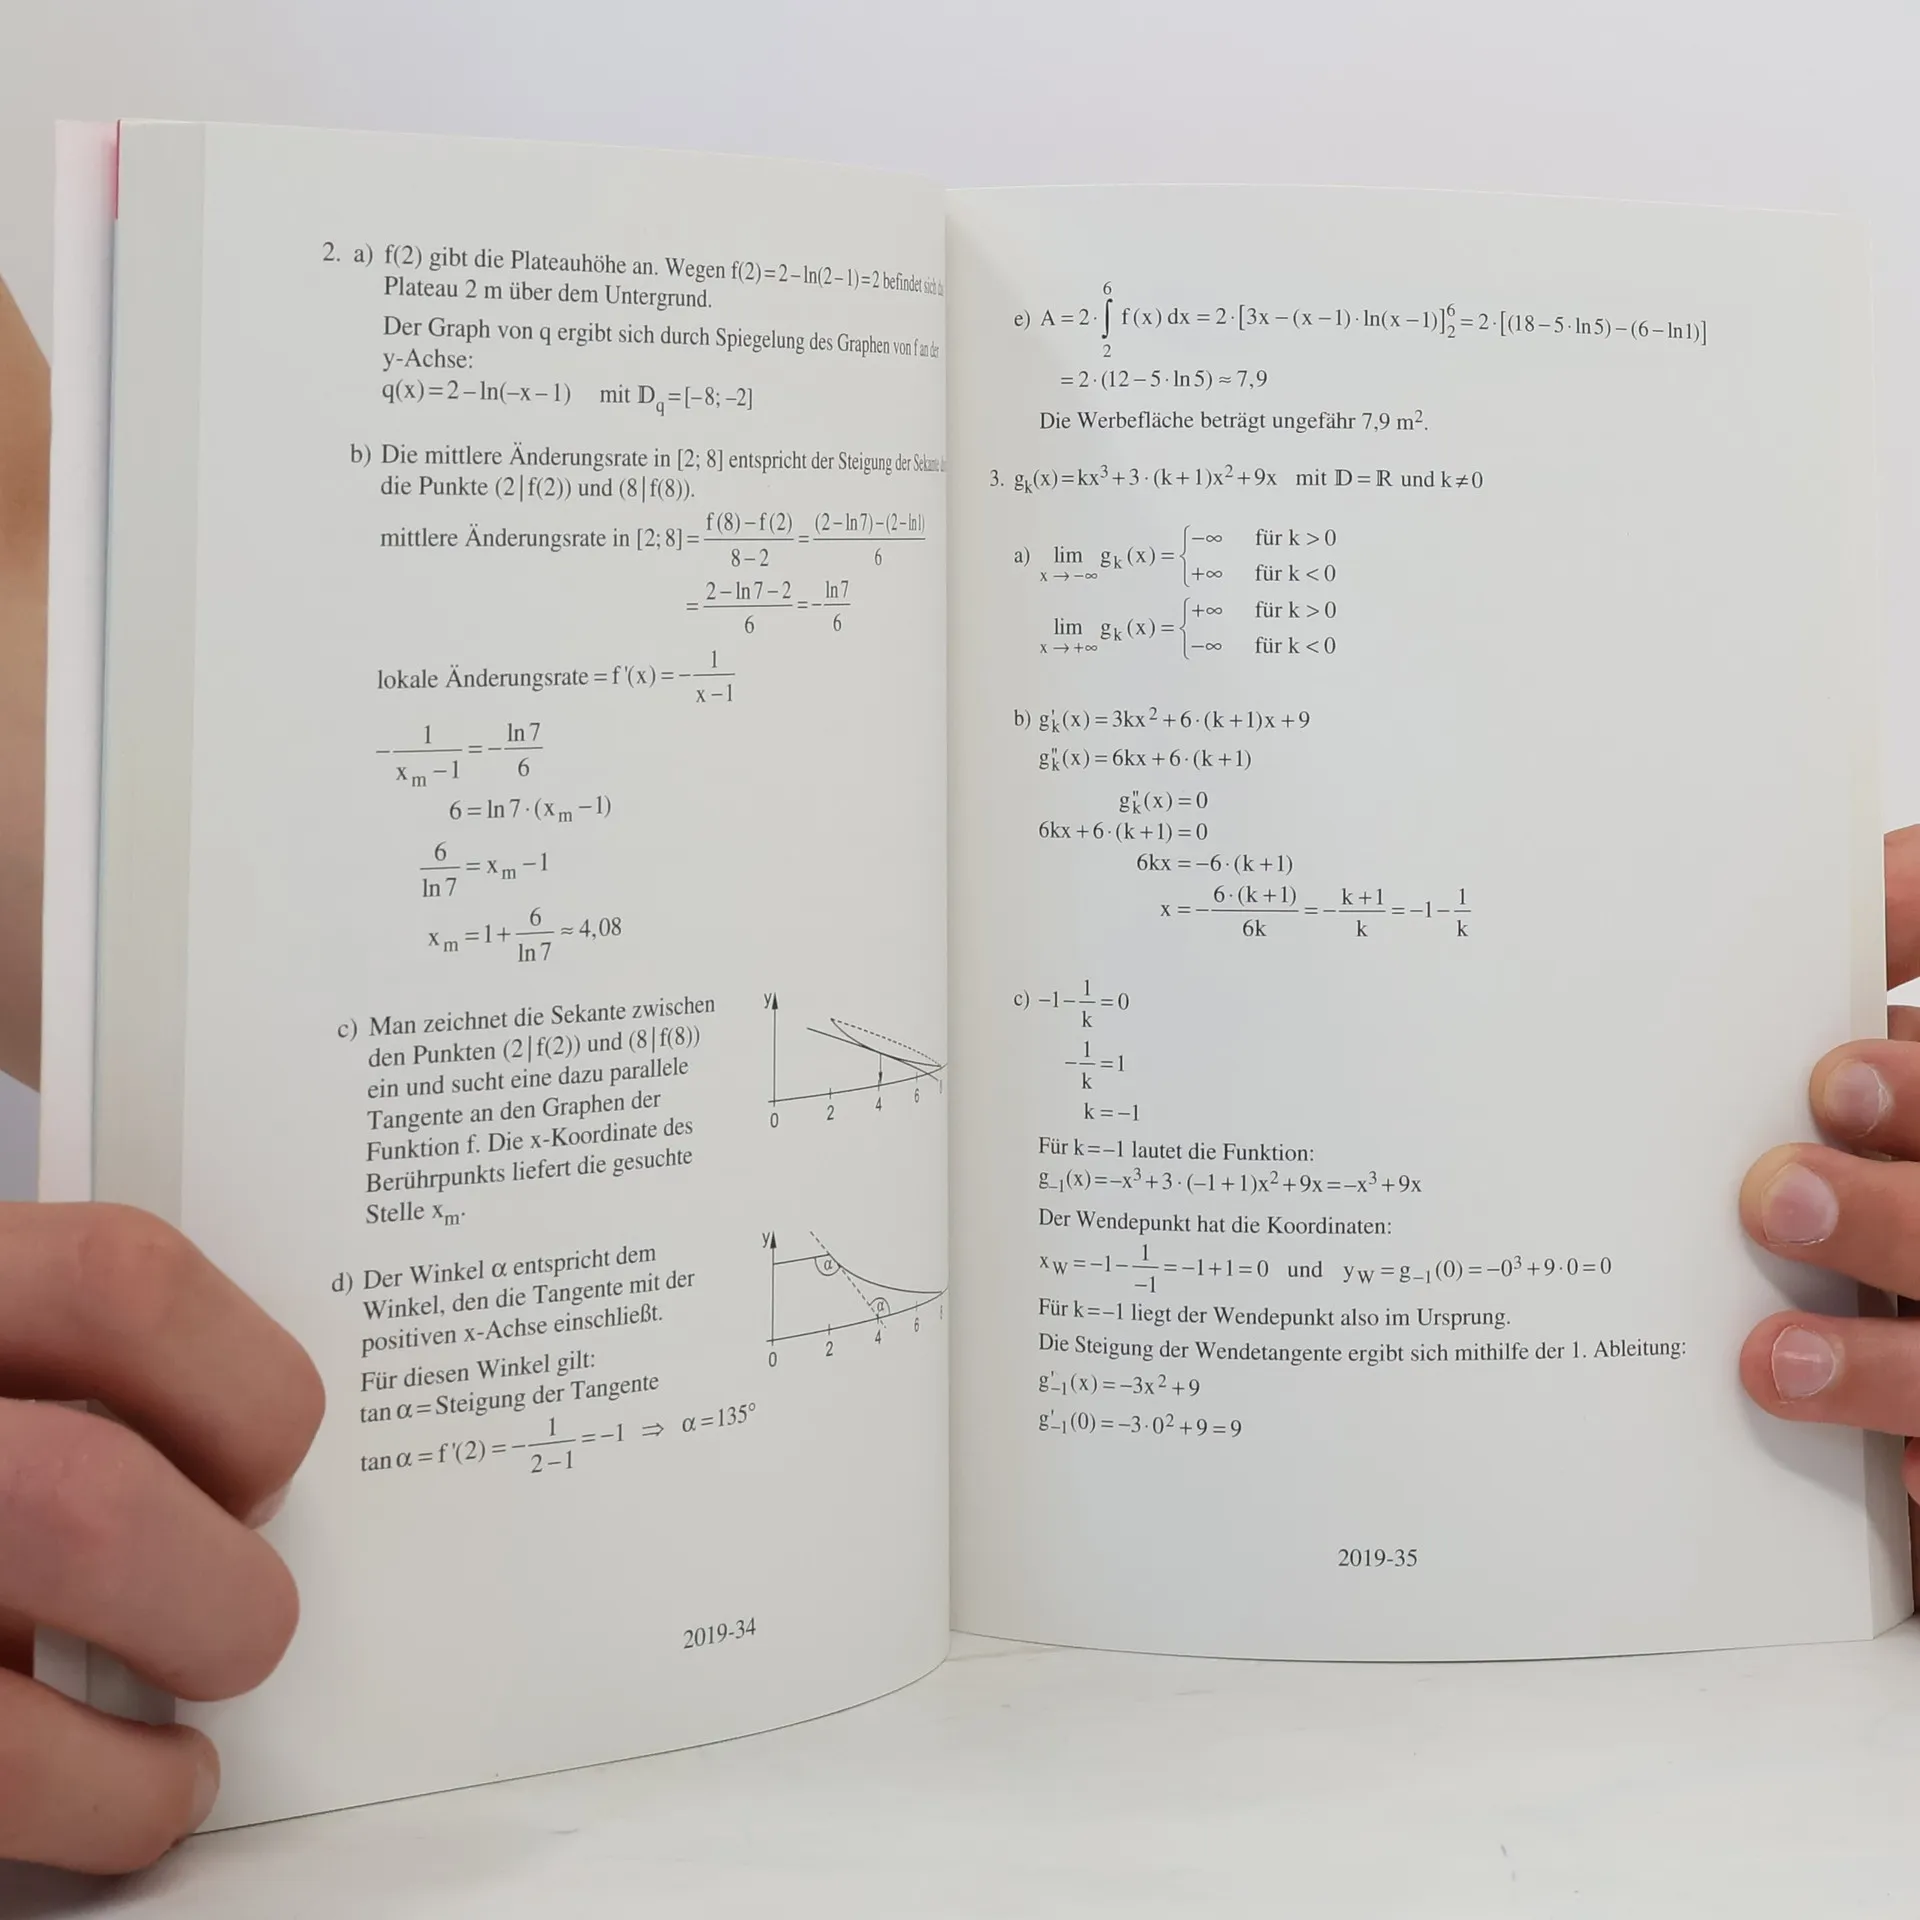 2. a) f(2) gibt die Plateauhöhe an. Wegen f(2)=2−ln(2−1)=2 befindet sich
Plateau 2 m über dem Untergrund.
Der Graph von q ergibt sich durch Spiegelung des Graphen von f an der
y-Achse:
q(x)=2−ln(−x−1) mit 𝔻_q=[−8; −2]
b) Die mittlere Änderungsrate in [2; 8] entspricht der Steigung der Sekante
die Punkte (2|f(2)) und (8|f(8)).
mittlere Änderungsrate in [2; 8] = (f(8)−f(2))/(8−2) = ((2−ln7)−(2−ln1))/6
= (2−ln7−2)/6 = −ln7/6
lokale Änderungsrate = f'(x) = −1/(x−1)
−1/(x_m−1) = −ln7/6
6 = ln7·(x_m−1)
6/ln7 = x_m−1
x_m = 1+6/ln7 ≈ 4,08
c) Man zeichnet die Sekante zwischen
den Punkten (2|f(2)) und (8|f(8))
ein und sucht eine dazu parallele
Tangente an den Graphen der
Funktion f. Die x-Koordinate des
Berührpunkts liefert die gesuchte
Stelle x_m.
y
0 2 4 6
d) Der Winkel α entspricht dem
Winkel, den die Tangente mit der
positiven x-Achse einschließt.
Für diesen Winkel gilt:
tan α = Steigung der Tangente
tan α = f'(2) = −1/(2−1) = −1 ⇒ α = 135°
y
α
α
0 2 4 6
2019-34
e) A = 2·∫₂⁶ f(x) dx = 2·[3x−(x−1)·ln(x−1)]₂⁶ = 2·[(18−5·ln5)−(6−ln1)]
= 2·(12−5·ln5) ≈ 7,9
Die Werbefläche beträgt ungefähr 7,9 m².
3. g_k(x)=kx³+3·(k+1)x²+9x mit 𝔻=ℝ und k≠0
a) lim x→−∞ g_k(x) = { −∞ für k>0
+∞ für k<0
lim x→+∞ g_k(x) = { +∞ für k>0
−∞ für k<0
b) g'_k(x) = 3kx²+6·(k+1)x+9
g''_k(x) = 6kx+6·(k+1)
g''_k(x) = 0
6kx+6·(k+1) = 0
6kx = −6·(k+1)
x = −(6·(k+1))/(6k) = −(k+1)/k = −1−1/k
c) −1−1/k = 0
−1/k = 1
k = −1
Für k=−1 lautet die Funktion:
g₋₁(x)=−x³+3·(−1+1)x²+9x=−x³+9x
Der Wendepunkt hat die Koordinaten:
x_W = −1−1/(−1) = −1+1 = 0 und y_W = g₋₁(0) = −0³+9·0 = 0
Für k=−1 liegt der Wendepunkt also im Ursprung.
Die Steigung der Wendetangente ergibt sich mithilfe der 1. Ableitung:
g'₋₁(x) = −3x²+9
g'₋₁(0) = −3·0²+9 = 9
2019-35